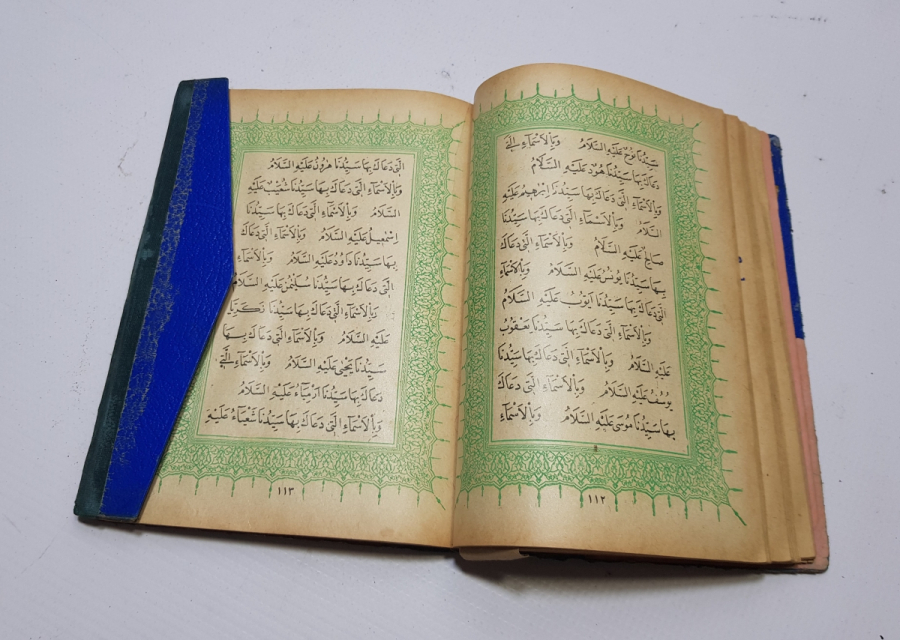 سَيِّدُنَا نُوحٌ عَلَيْهِ السَّلَامُ وَبِالْأَسْمَاءِ الَّتِي
دَعَاكَ بِهَا سَيِّدُنَا هُودٌ عَلَيْهِ السَّلَامُ
وَبِالْأَسْمَاءِ الَّتِي دَعَاكَ بِهَا سَيِّدُنَا اِبْرٰهِيمُ عَلَيْهِ
السَّلَامُ وَبِالْأَسْمَاءِ الَّتِي دَعَاكَ بِهَا سَيِّدُنَا
صَالِحٌ عَلَيْهِ السَّلَامُ وَبِالْأَسْمَاءِ الَّتِي دَعَاكَ
بِهَا سَيِّدُنَا يُونُسُ عَلَيْهِ السَّلَامُ وَبِالْأَسْمَاءِ
الَّتِي دَعَاكَ بِهَا سَيِّدُنَا اَيُّوبُ عَلَيْهِ السَّلَامُ
وَبِالْأَسْمَاءِ الَّتِي دَعَاكَ بِهَا سَيِّدُنَا يَعْقُوبُ
عَلَيْهِ السَّلَامُ وَبِالْأَسْمَاءِ الَّتِي دَعَاكَ بِهَا سَيِّدُنَا
يُوسُفُ عَلَيْهِ السَّلَامُ وَبِالْأَسْمَاءِ الَّتِي دَعَاكَ
بِهَا سَيِّدُنَا مُوسَى عَلَيْهِ السَّلَامُ وَبِالْأَسْمَاءِ
١١٢
الَّتِي دَعَاكَ بِهَا سَيِّدُنَا هٰرُونُ عَلَيْهِ السَّلَامُ
وَبِالْأَسْمَاءِ الَّتِي دَعَاكَ بِهَا سَيِّدُنَا شُعَيْبٌ عَلَيْهِ
السَّلَامُ وَبِالْأَسْمَاءِ الَّتِي دَعَاكَ بِهَا سَيِّدُنَا
اِسْمٰعِيلُ عَلَيْهِ السَّلَامُ وَبِالْأَسْمَاءِ الَّتِي دَعَاكَ
بِهَا سَيِّدُنَا دَاوُدُ عَلَيْهِ السَّلَامُ وَبِالْأَسْمَاءِ
الَّتِي دَعَاكَ بِهَا سَيِّدُنَا سُلَيْمٰنُ عَلَيْهِ السَّلَامُ
وَبِالْأَسْمَاءِ الَّتِي دَعَاكَ بِهَا سَيِّدُنَا زَكَرِيَّا
عَلَيْهِ السَّلَامُ وَبِالْأَسْمَاءِ الَّتِي دَعَاكَ بِهَا
سَيِّدُنَا يَحْيٰى عَلَيْهِ السَّلَامُ وَبِالْأَسْمَاءِ الَّتِي
دَعَاكَ بِهَا سَيِّدُنَا اَرْمِيَاءُ عَلَيْهِ السَّلَامُ
وَبِالْأَسْمَاءِ الَّتِي دَعَاكَ بِهَا سَيِّدُنَا شَعْيَاءُ عَلَيْهِ
١١٣